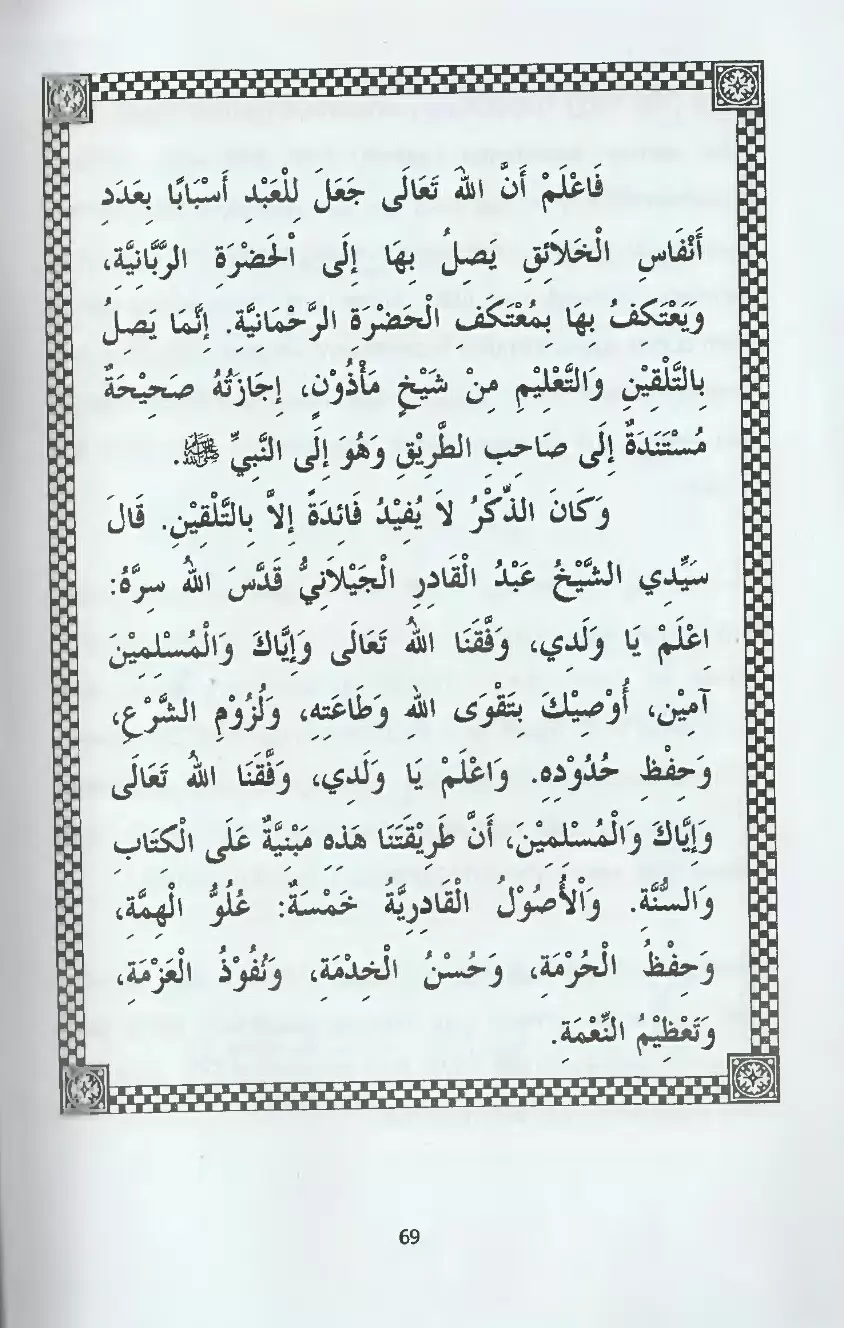 فَاعْلَمْ أَنَّ اللهَ تَعَالَى جَعَلَ لِلْعَبْدِ أَسْبَابًا بِعَدَدِ
أَنْفَاسِ الْخَلَائِقِ يَصِلُ بِهَا إِلَى الْحَضْرَةِ الرَّبَّانِيَّةِ،
وَيَعْتَكِفُ بِهَا بِمُعْتَكَفِ الْحَضْرَةِ الرَّحْمَانِيَّةِ. إِنَّمَا يَصِلُ
بِالتَّلْقِيْنِ وَالتَّعْلِيْمِ مِنْ شَيْخٍ مَأْذُوْنٍ، إِجَازَتُهُ صَحِيْحَةٌ
مُسْتَنَدَةٌ إِلَى صَاحِبِ الطَّرِيْقِ وَهُوَ إِلَى النَّبِيِّ ﷺ.
وَكَانَ الذِّكْرُ لاَ يُفِيْدُ فَائِدَةً إِلاَّ بِالتَّلْقِيْنِ. قَالَ
سَيِّدِي الشَّيْخُ عَبْدُ الْقَادِرِ الْجَيْلاَنِيُّ قَدَّسَ اللهُ سِرَّهُ:
اعْلَمْ يَا وَلَدِي، وَفَّقَنَا اللهُ تَعَالَى وَإِيَّاكَ وَالْمُسْلِمِيْنَ
آمِيْن، أُوْصِيْكَ بِتَقْوَى اللهِ وَطَاعَتِهِ، وَلُزُوْمِ الشَّرْعِ،
وَحِفْظِ حُدُوْدِهِ. وَاعْلَمْ يَا وَلَدِي، وَفَّقَنَا اللهُ تَعَالَى
وَإِيَّاكَ وَالْمُسْلِمِيْنَ، أَنَّ طَرِيْقَتَنَا هَذِهِ مَبْنِيَّةٌ عَلَى الْكِتَابِ
وَالسُّنَّةِ. وَالْأُصُوْلُ الْقَادِرِيَّةُ خَمْسَةٌ: عُلُوُّ الْهِمَّةِ،
وَحِفْظُ الْحُرْمَةِ، وَحُسْنُ الْخِدْمَةِ، وَنُفُوْذُ الْعَزْمَةِ،
وَتَعْظِيْمُ النِّعْمَةِ.
69